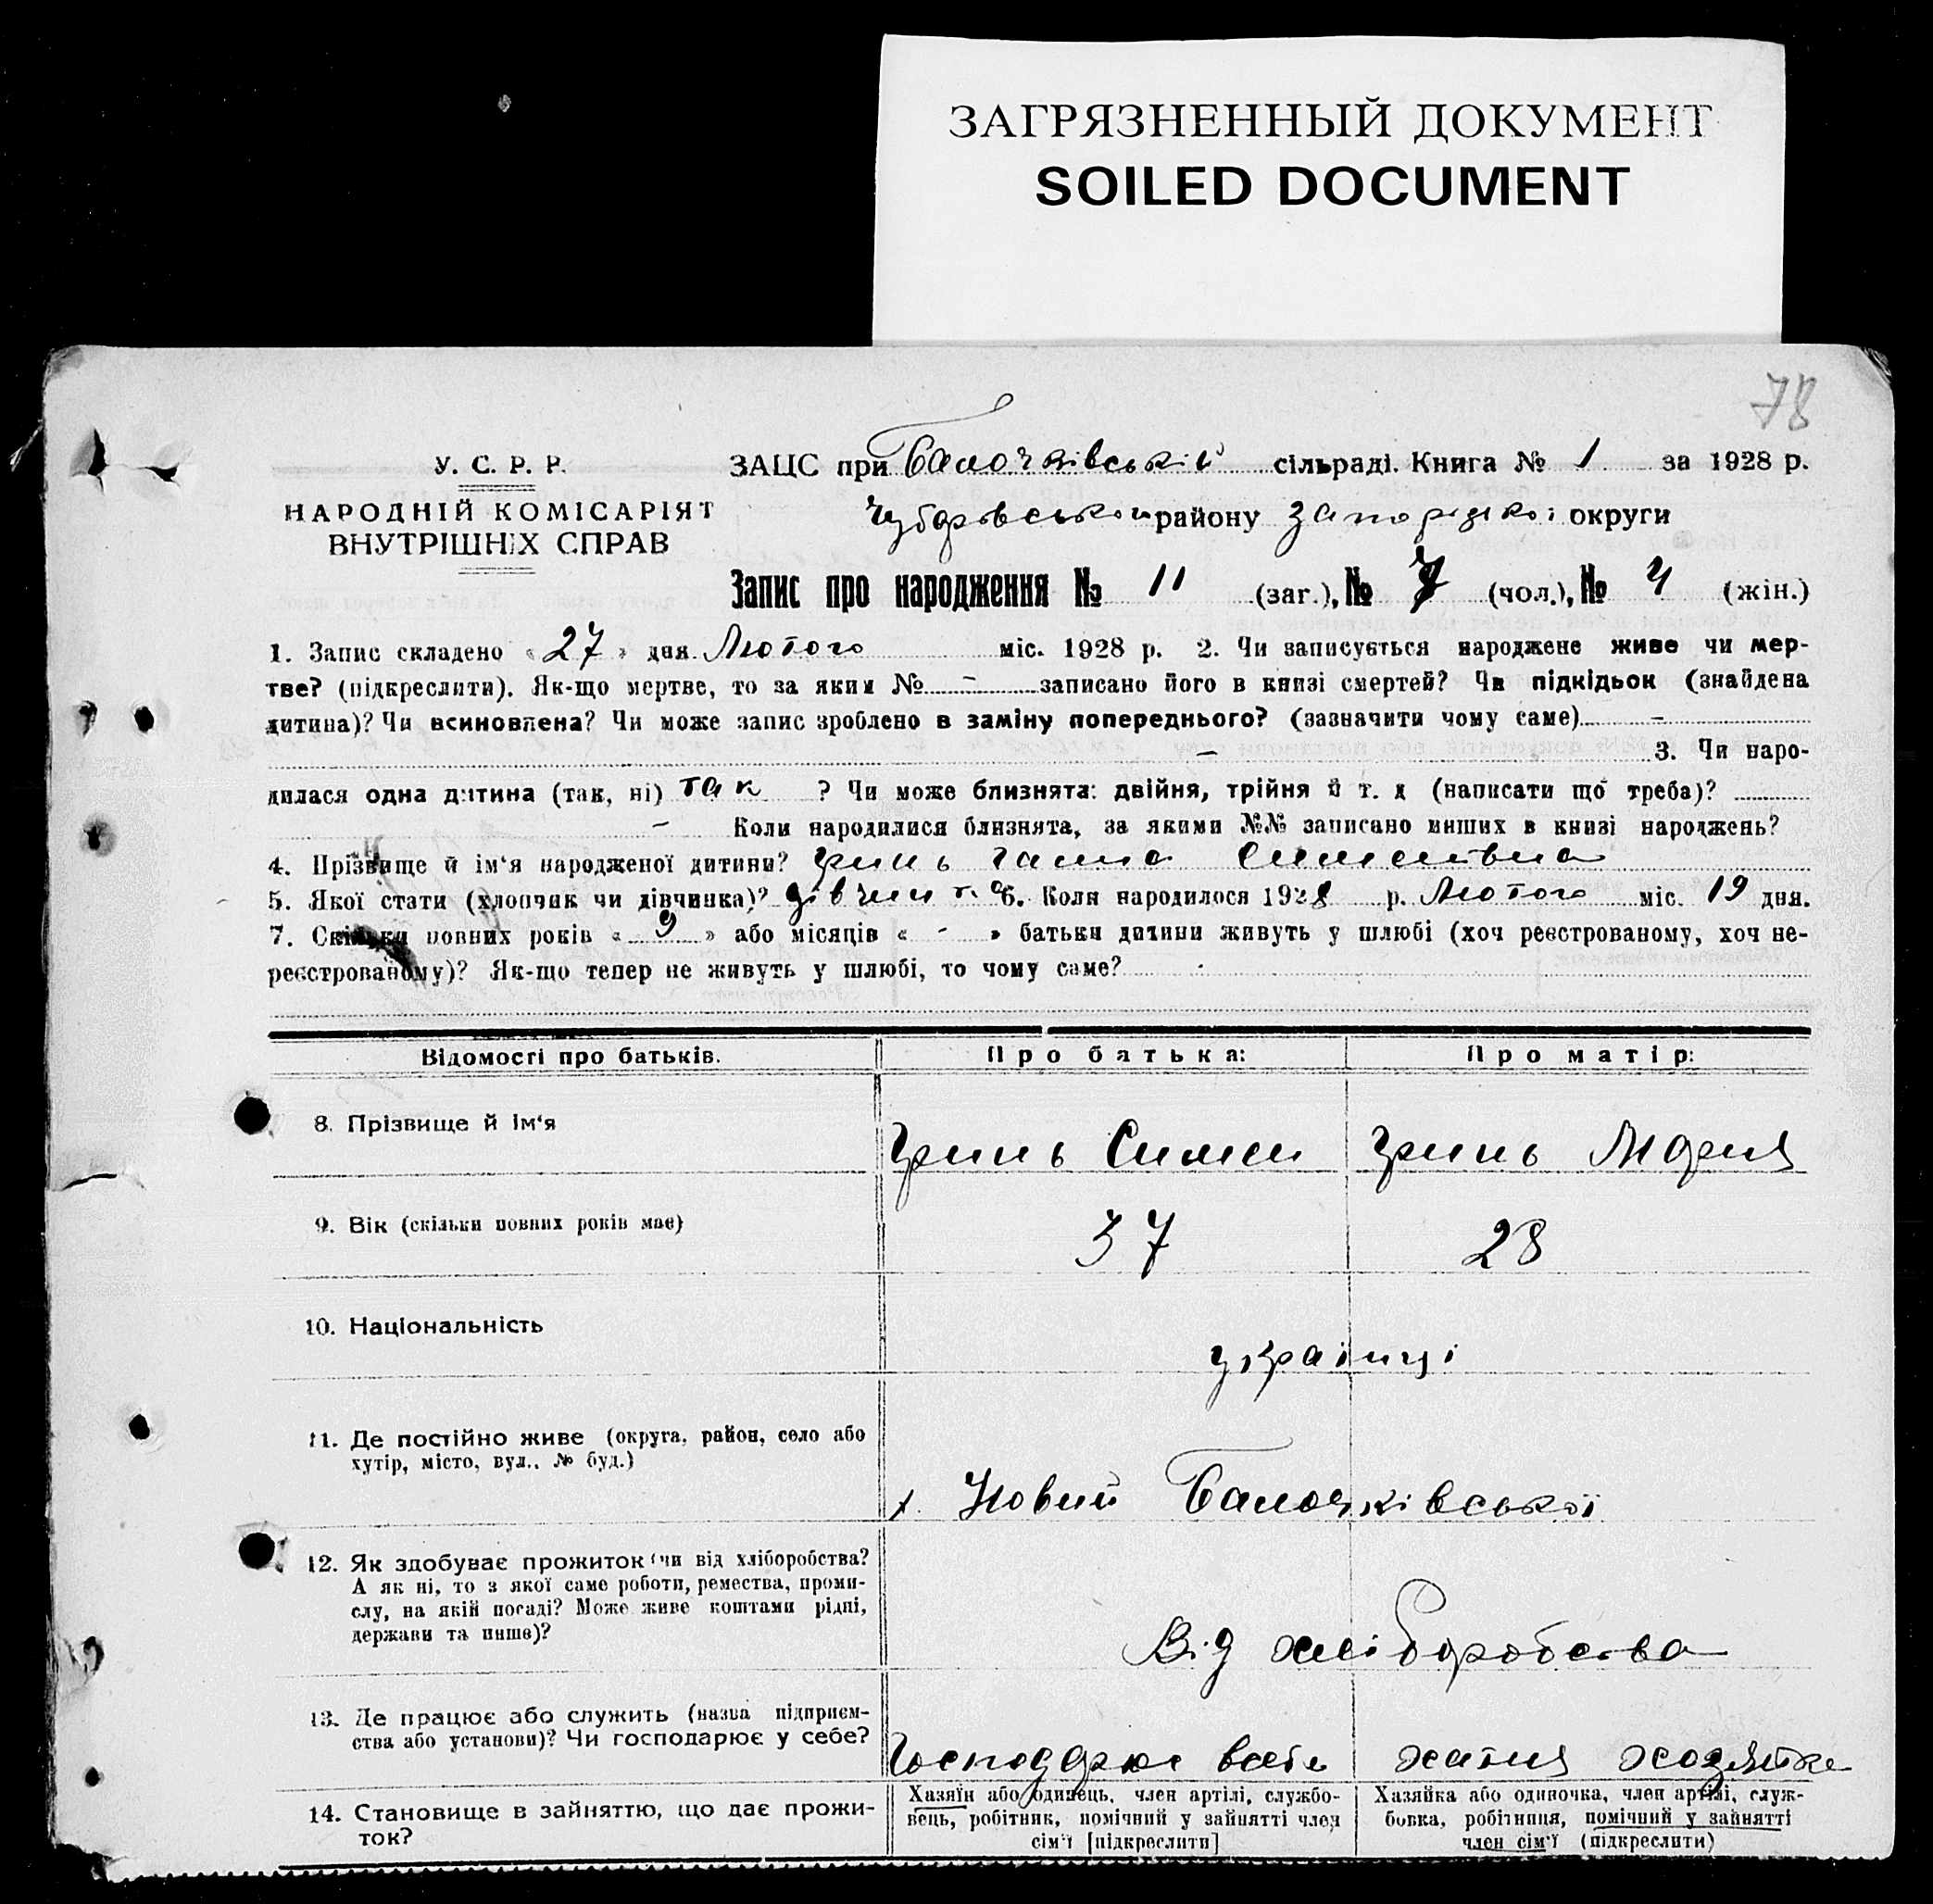 ЗАГРЯЗНЕННЫЙ ДОКУМЕНТ
SOILED DOCUMENT
78
У. С. Р. Р.
НАРОДНІЙ КОМІСАРІЯТ
ВНУТРІШНІХ СПРАВ
ЗАЦС при Балочківській сільраді. Книга № 1 за 1928 р.
Чубарівського району Запорізкої округи
Запис про народження № 11 (заг.), № 7 (чол.), № 4 (жін.)
1. Запис складено « 27 » дня Лютого міс. 1928 р. 2. Чи записується народжене живе чи мер-
тве? (підкреслити). Як-що мертве, то за яким № - записано його в книзі смертей? Чи підкідьок (знайдена
дитина)? Чи всиновлена? Чи може запис зроблено в заміну попереднього? (зазначити чому саме) -
- 3. Чи наро-
дилася одна дитина (так, ні) так ? Чи може близнята: двійня, трійня й т. д (написати що треба)?
- Коли народилися близнята, за якими №№ записано инших в книзі народжень?
4. Прізвище й ім'я народженої дитини? Гринь Ганна Сименівна
5. Якої стати (хлопчик чи дівчинка)? дівчинка 6. Коли народилося 1928 р. Лютого міс. 19 дня.
7. Скільки повних років « 9 » або місяців « - » батьки дитини живуть у шлюбі (хоч реєстрованому, хоч не-
реєстрованому)? Як-що тепер не живуть у шлюбі, то чому саме? -
Відомості про батьків. Про батька: Про матір:
8. Прізвище й ім'я Гринь Симен Гринь Мария
9. Вік (скільки повних років має) 37 28
10. Національність українці
11. Де постійно живе (округа, район, село або
хутір, місто, вул.. № буд.)
х. Новий Балочківської
12. Як здобуває прожиток (чи від хліборобства?
А як ні, то з якої саме роботи, ремества, проми-
слу, на якій посаді? Може живе коштами рідні,
держави та инше)?
Від хліборобства
13. Де працює або служить (назва підприєм-
ства або установи)? Чи господарює у себе?
Господарює в себе хатня хозяйка
14. Становище в зайняттю, що дає прожи-
ток?
Хазяїн або одинець, член артілі, службо-
вець, робітник, помічний у зайнятті член
сім'ї [підкреслити]
Хазяйка або одиночка, член артілі, служ-
бовка, робітниця, помічний у зайнятті
член сім'ї (підкреслити)